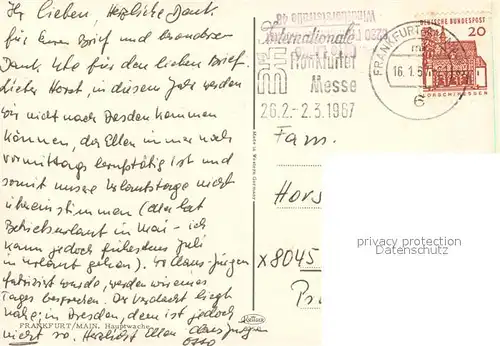 Ihr Lieben, Herzliche Dank
für Euren Brief und besonderen
Dank Ute für den lieben Brief.
Lieber Horst, in diesem Jahr werden
wir nicht nach Dresden kommen
können, da Ellen immer noch
vormittags berufstätig ist und
somit unsere Urlaubstage nicht
übereinstimmen (Ellen hat
Betriebsurlaub im Mai - ich
kann jedoch frühestens Juli
in Urlaub gehen). Wo Claus-Jürgen
fabriziert wurde, werden wir eines
Tages besprechen. Der Verdacht liegt
nahe, in Dresden, dem ist jedoch
FRANKFURT/MAIN, Hauptwache
nicht so. Herzlichst Ellen Claus Jürgen
Otto
Internationale
Frankfurter
Messe
26.2.-2.3.1967
FRANKFURT
16.1.6
6
DEUTSCHE BUNDESPOST
20
LORSCH/HESSEN
Fam.
Hors
X8045
privacy protection
Datenschutz